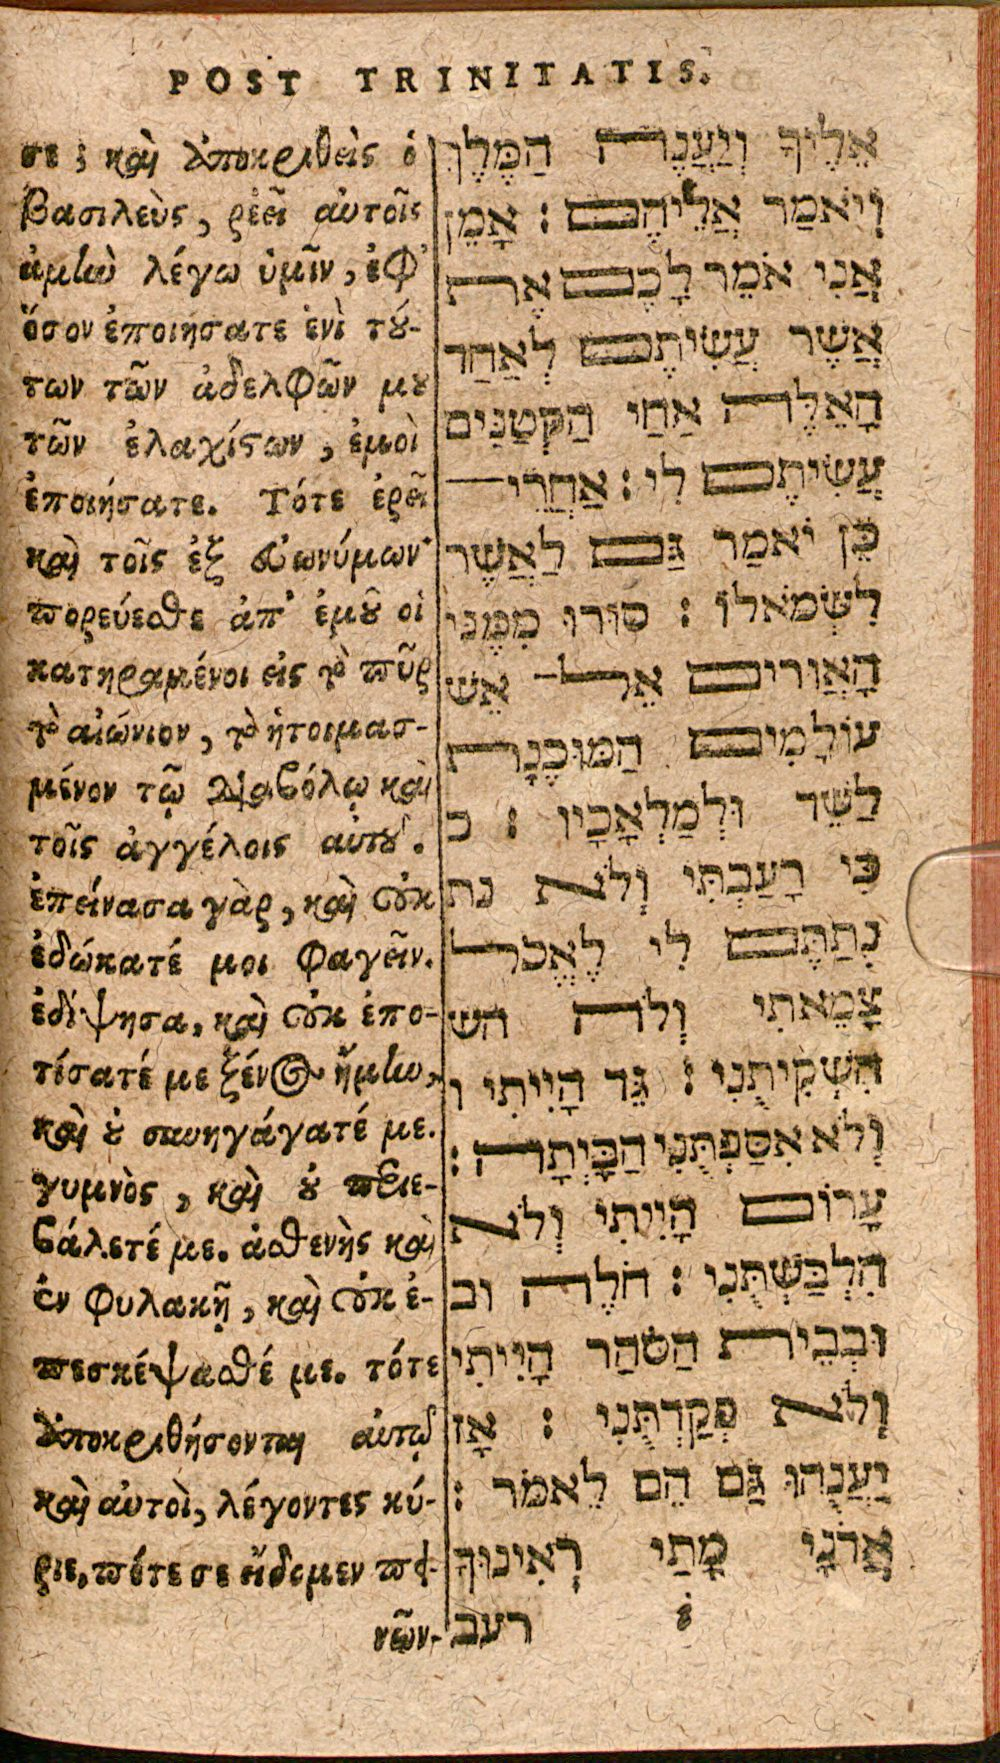 POST TRINITATIS.
σε; καὶ ἀποκριθεὶς ὁ
Βασιλεὺς, ῥέει αὐτοῖς
ἀμὼ λέγω ὑμῖν, ἐφ᾽
ὅσον ἐποιήσατε ἑνὶ τού-
των τῶν ἀδελφῶν μου
τῶν ἐλαχίστων, ἐμοὶ
ἐποιήσατε. Τότε ἐρεῖ
καὶ τοῖς ἐξ εὐωνύμων·
πορεύεσθε ἀπ᾽ ἐμοῦ οἱ
κατηραμένοι εἰς τὸ πῦρ
τὸ αἰώνιον, τὸ ἡτοιμασ-
μένον τῷ Διαβόλῳ καὶ
τοῖς ἀγγέλοις αὐτοῦ.
ἐπείνασα γὰρ, καὶ οὐκ
ἐδώκατέ μοι φαγεῖν.
ἐδίψησα, καὶ οὐκ ἐπο-
τίσατέ με ξένος ἤμην,
καὶ οὐ συνηγάγατέ με.
γυμνὸς, καὶ οὐ περιε-
βάλετέ με. ἀσθενὴς καὶ
ἐν φυλακῇ, καὶ οὐκ ἐ-
πεσκέψασθέ με. τότε
ἀποκριθήσονται αὐτῷ
καὶ αὐτοὶ, λέγοντες κύ-
ριε, πότε σε εἴδομεν πει-
νῶν-
אֵלֶיךָ וְיַעֲנֶה הַמֶּלֶךְ
וְיֹאמַר אֲלֵיהֶם : אָמֵן
אֲנִי אֹמֵר לָכֶם אֶת
אֲשֶׁר עֲשִׂיתֶם לְאַחַד
הָאֵלֶּה אַחַי הַקְּטַנִּים
עֲשִׂיתֶם לִי : אַחֲרֵי־
כֵּן יֹאמַר גַּם לַאֲשֶׁר
לִשְׂמֹאלוֹ : סוּרוּ מִמֶּנִּי
הָאֲוּרִים אֶל־ אֵשׁ
עוֹלָמִים הַמּוּכֶנֶת
לַשֵּׁד וּלְמַלְאָכָיו : כ
כִּי רָעַבְתִּי וְלֹא נת
נְתַתֶּם לִי לֶאֱכֹל
צָמֵאתִי וְלֹה הש
הִשְׁקִיתֻנִי : גֵּר הָיִיתִי ו
וְלֹא אִסַּפְתֻּנִי הַבָּיְתָה :
עָרוֹם הָיִיתִי וְלֹא
הִלְבַּשְׁתֻּנִי : חֹלֶה וב
וּבְבֵית הַסֹּהַר הָיִיתִי
וְלֹא פְּקַדְתֻּנִי : אָז
יַעֲנֻהוּ גַּם הֵם לֵאמֹר :
אֲדֹנָי מָתַי רָאִינוּךָ
רעב